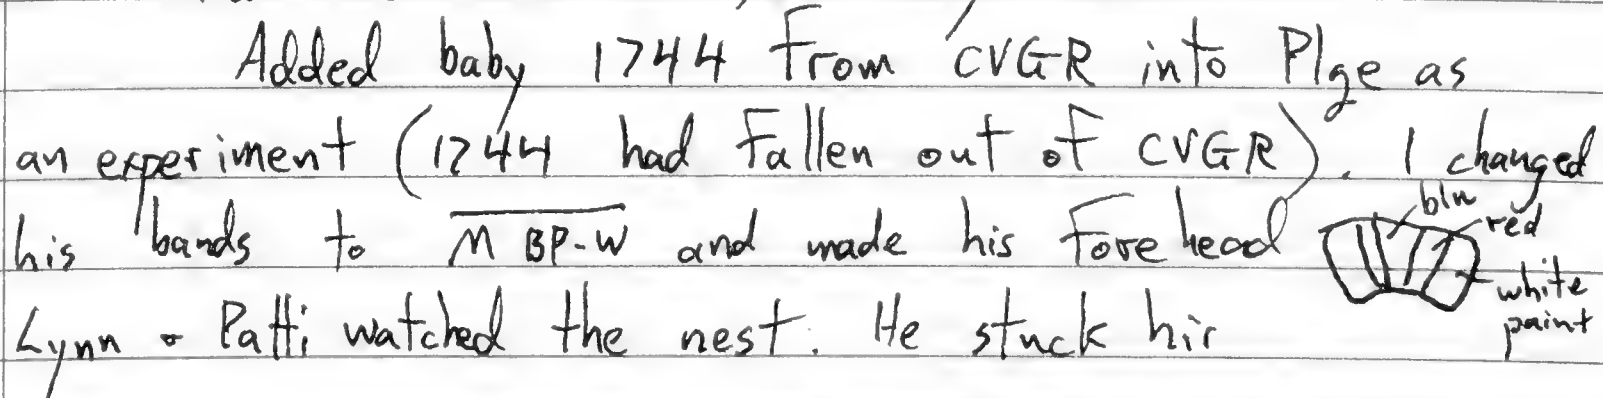 Added baby 1744 from CVGR into Plge as
an experiment (1744 had fallen out of CVGR). I changed
his bands to M BP-W and made his forehead
blu
red
white
paint
Lynn & Patti watched the nest. He stuck his